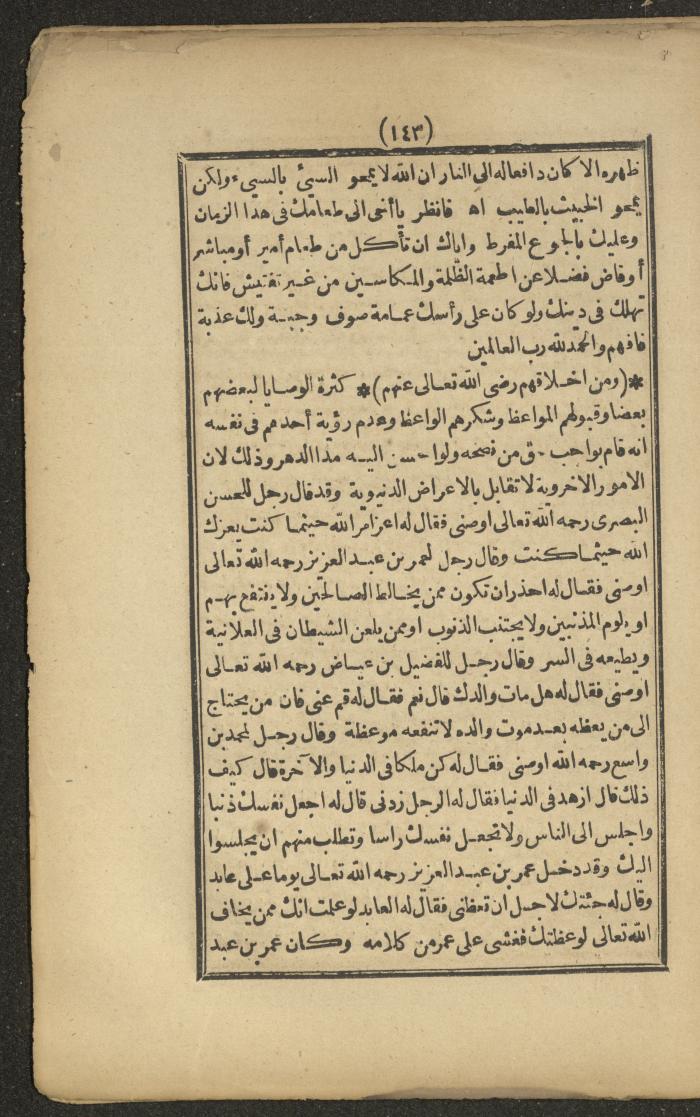 (١٤٣)
ظهره الا كان دافعاله الى النار ان الله لا يمحو السيئ بالسيء ولكن
يمحو الخبيث بالطيب اه فانظر يا أخى الى طعامك فى هذا الزمان
وعليك بالجوع المفرط واياك ان تأكل من طعام أمير أو مباشر
أوقاض فضلا عن اطعمة الظلمة والمكاسين من غير تفتيش فانك
تهلك فى دينك ولو كان على رأسك عمامة صوف وجبة ولك عذبة
فافهم والحمد لله رب العالمين
*(ومن اخلاقهم رضى الله تعالى عنهم)* كثرة الوصايا لبعضهم
بعضا وقبولهم المواعظ وشكرهم الواعظ وعدم رؤية أحدهم فى نفسه
انه قام بواجب حق من نصحه ولو احسن اليه مدا الدهر وذلك لان
الامور الاخروية لا تقابل بالاعراض الدنيوية وقد قال رجل للحسن
البصرى رحمه الله تعالى اوصنى فقال له اعز امر الله حيثما كنت يعزك
الله حيثما كنت وقال رجل لعمر بن عبد العزيز رحمه الله تعالى
اوصنى فقال له احذر ان تكون ممن يخالط الصالحين ولا ينتفع بهم
او يلوم المذنبين ولا يجتنب الذنوب او ممن يلعن الشيطان فى العلانية
ويطيعه فى السر وقال رجل للفضيل بن عياض رحمه الله تعالى
اوصنى فقال له هل مات والدك قال نعم فقال له قم عنى فان من يحتاج
الى من يعظه بعد موت والده لا تنفعه موعظة وقال رجل لمحمد بن
واسع رحمه الله اوصنى فقال له كن ملكا فى الدنيا والآخرة قال كيف
ذلك قال ازهد فى الدنيا فقال له الرجل زدنى قال له اجعل نفسك ذنبا
واجلس الى الناس ولا تجعل نفسك راسا وتطلب منهم ان يجلسوا
اليك وقد دخل عمر بن عبد العزيز رحمه الله تعالى يوما على عابد
وقال له جئتك لاجل ان تعظنى فقال له العابد لو علمت انك ممن يخاف
الله تعالى لوعظتك فغشى على عمر من كلامه وكان عمر بن عبد